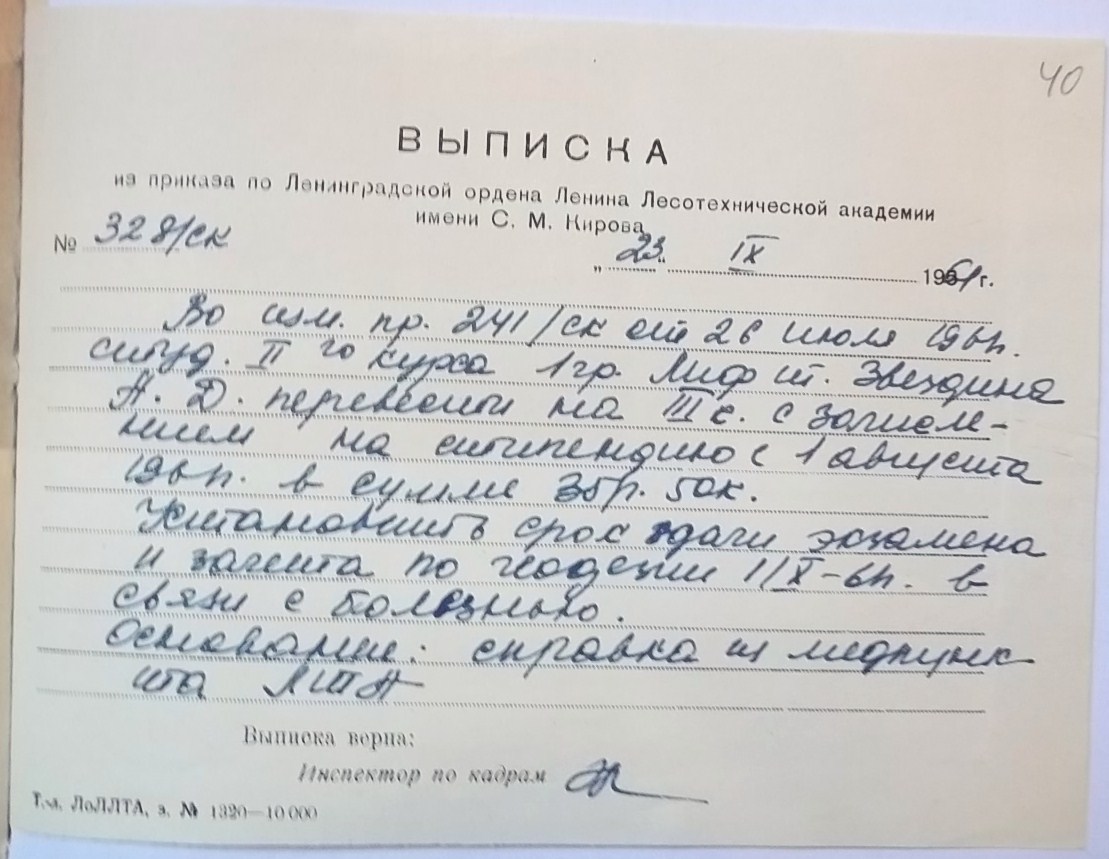 40
ВЫПИСКА
из приказа по Ленинградской ордена Ленина Лесотехнической академии
имени С. М. Кирова
№ 328/ск
„23“ IX 1961 г.
Во изм. пр. 241/ск от 26 июля 1961г.
студ. II го курса 1 гр. Лиф ст. Звездина
А. Д. перевести на III к. с зачисле-
нием на стипендию с 1 августа
1961г. в сумме 35р. 50к.
Установить срок сдачи экзамена
и зачета по геодезии 1/IX-61г. в
связи с болезнью.
Основание: справка из медпунк
та ЛТА
Выписка верна:
Инспектор по кадрам
Тип. ЛоЛЛТА, з. № 1320—10 000